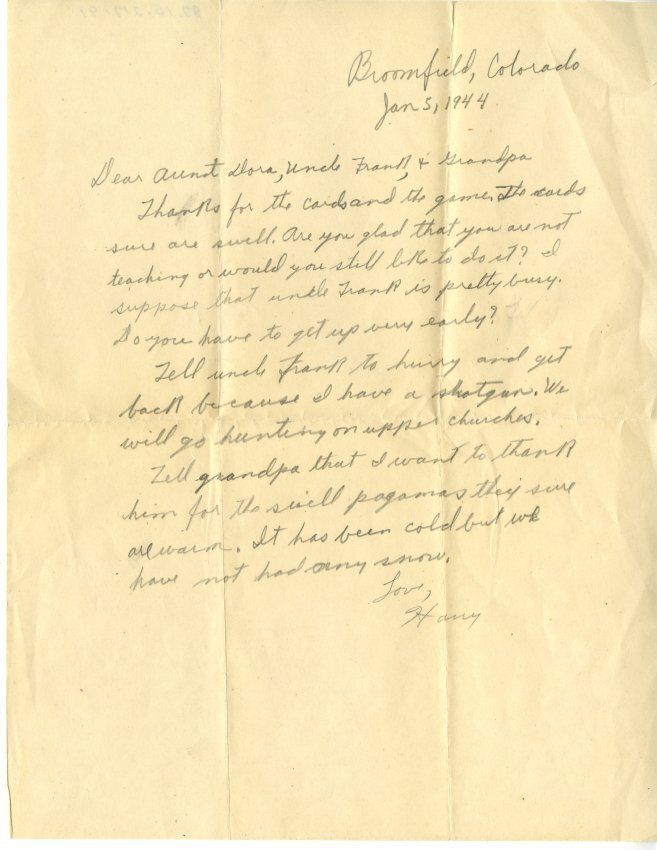 Broomfield, Colorado
Jan 5, 1944
Dear Aunt Dora, Uncle Frank, & Grandpa
Thanks for the cards and the game. The cards
sure are swell. Are you glad that you are not
teaching or would you still like to do it? I
suppose that uncle Frank is pretty busy.
Do you have to get up very early?
Tell uncle Frank to hurry and get
back because I have a shotgun. We
will go hunting on upper churches.
Tell grandpa that I want to thank
him for the swell pagamas they sure
are warm. It has been cold but we
have not had any snow.
Love,
Harry